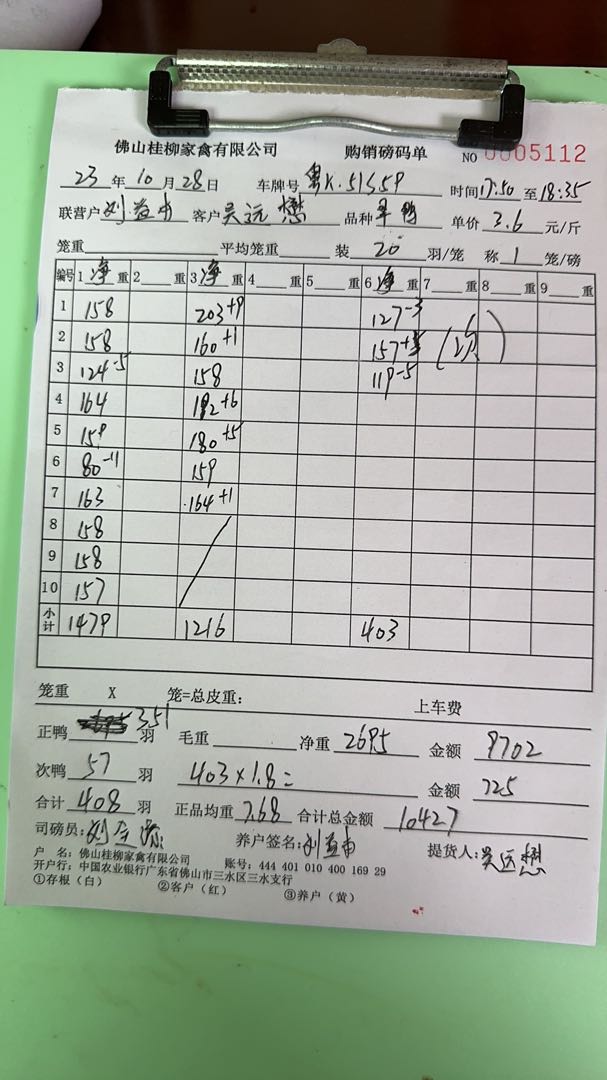 佛山桂柳家禽有限公司 购销磅码单 NO 0005112
23 年 10 月 28 日 车牌号 粤K.51S59 时间 17:50 至 18:35
联营户 刘益南 客户 吴远懋 品种 单价 3.6 元/斤
笼重 平均笼重 装 20 羽/笼 称 1 笼/磅
编号 1 净 重 2 重 3 净 重 4 重 5 重 6 净 重 7 重 8 重 9 重
1 158 203+9 127-3
2 158 160+1 157 (次)
3 124-5 158 119-5
4 164 192+6
5 159 180+5
6 80-11 159
7 163 164+1
8 158
9 158
10 157
小计 1479 1216 403
笼重 X 笼=总皮重: 上车费
正鸭 351 羽 毛重 净重 2695 金额 9702
次鸭 57 羽 403×1.8= 金额 725
合计 408 羽 正品均重 7.68 合计总金额 10427
司磅员: 养户签名: 刘益南 提货人: 吴远懋
户 名: 佛山桂柳家禽有限公司 账号: 444 401 010 400 169 29
开户行: 中国农业银行广东省佛山市三水区三水支行
①存根（白） ②客户（红） ③养户（黄）